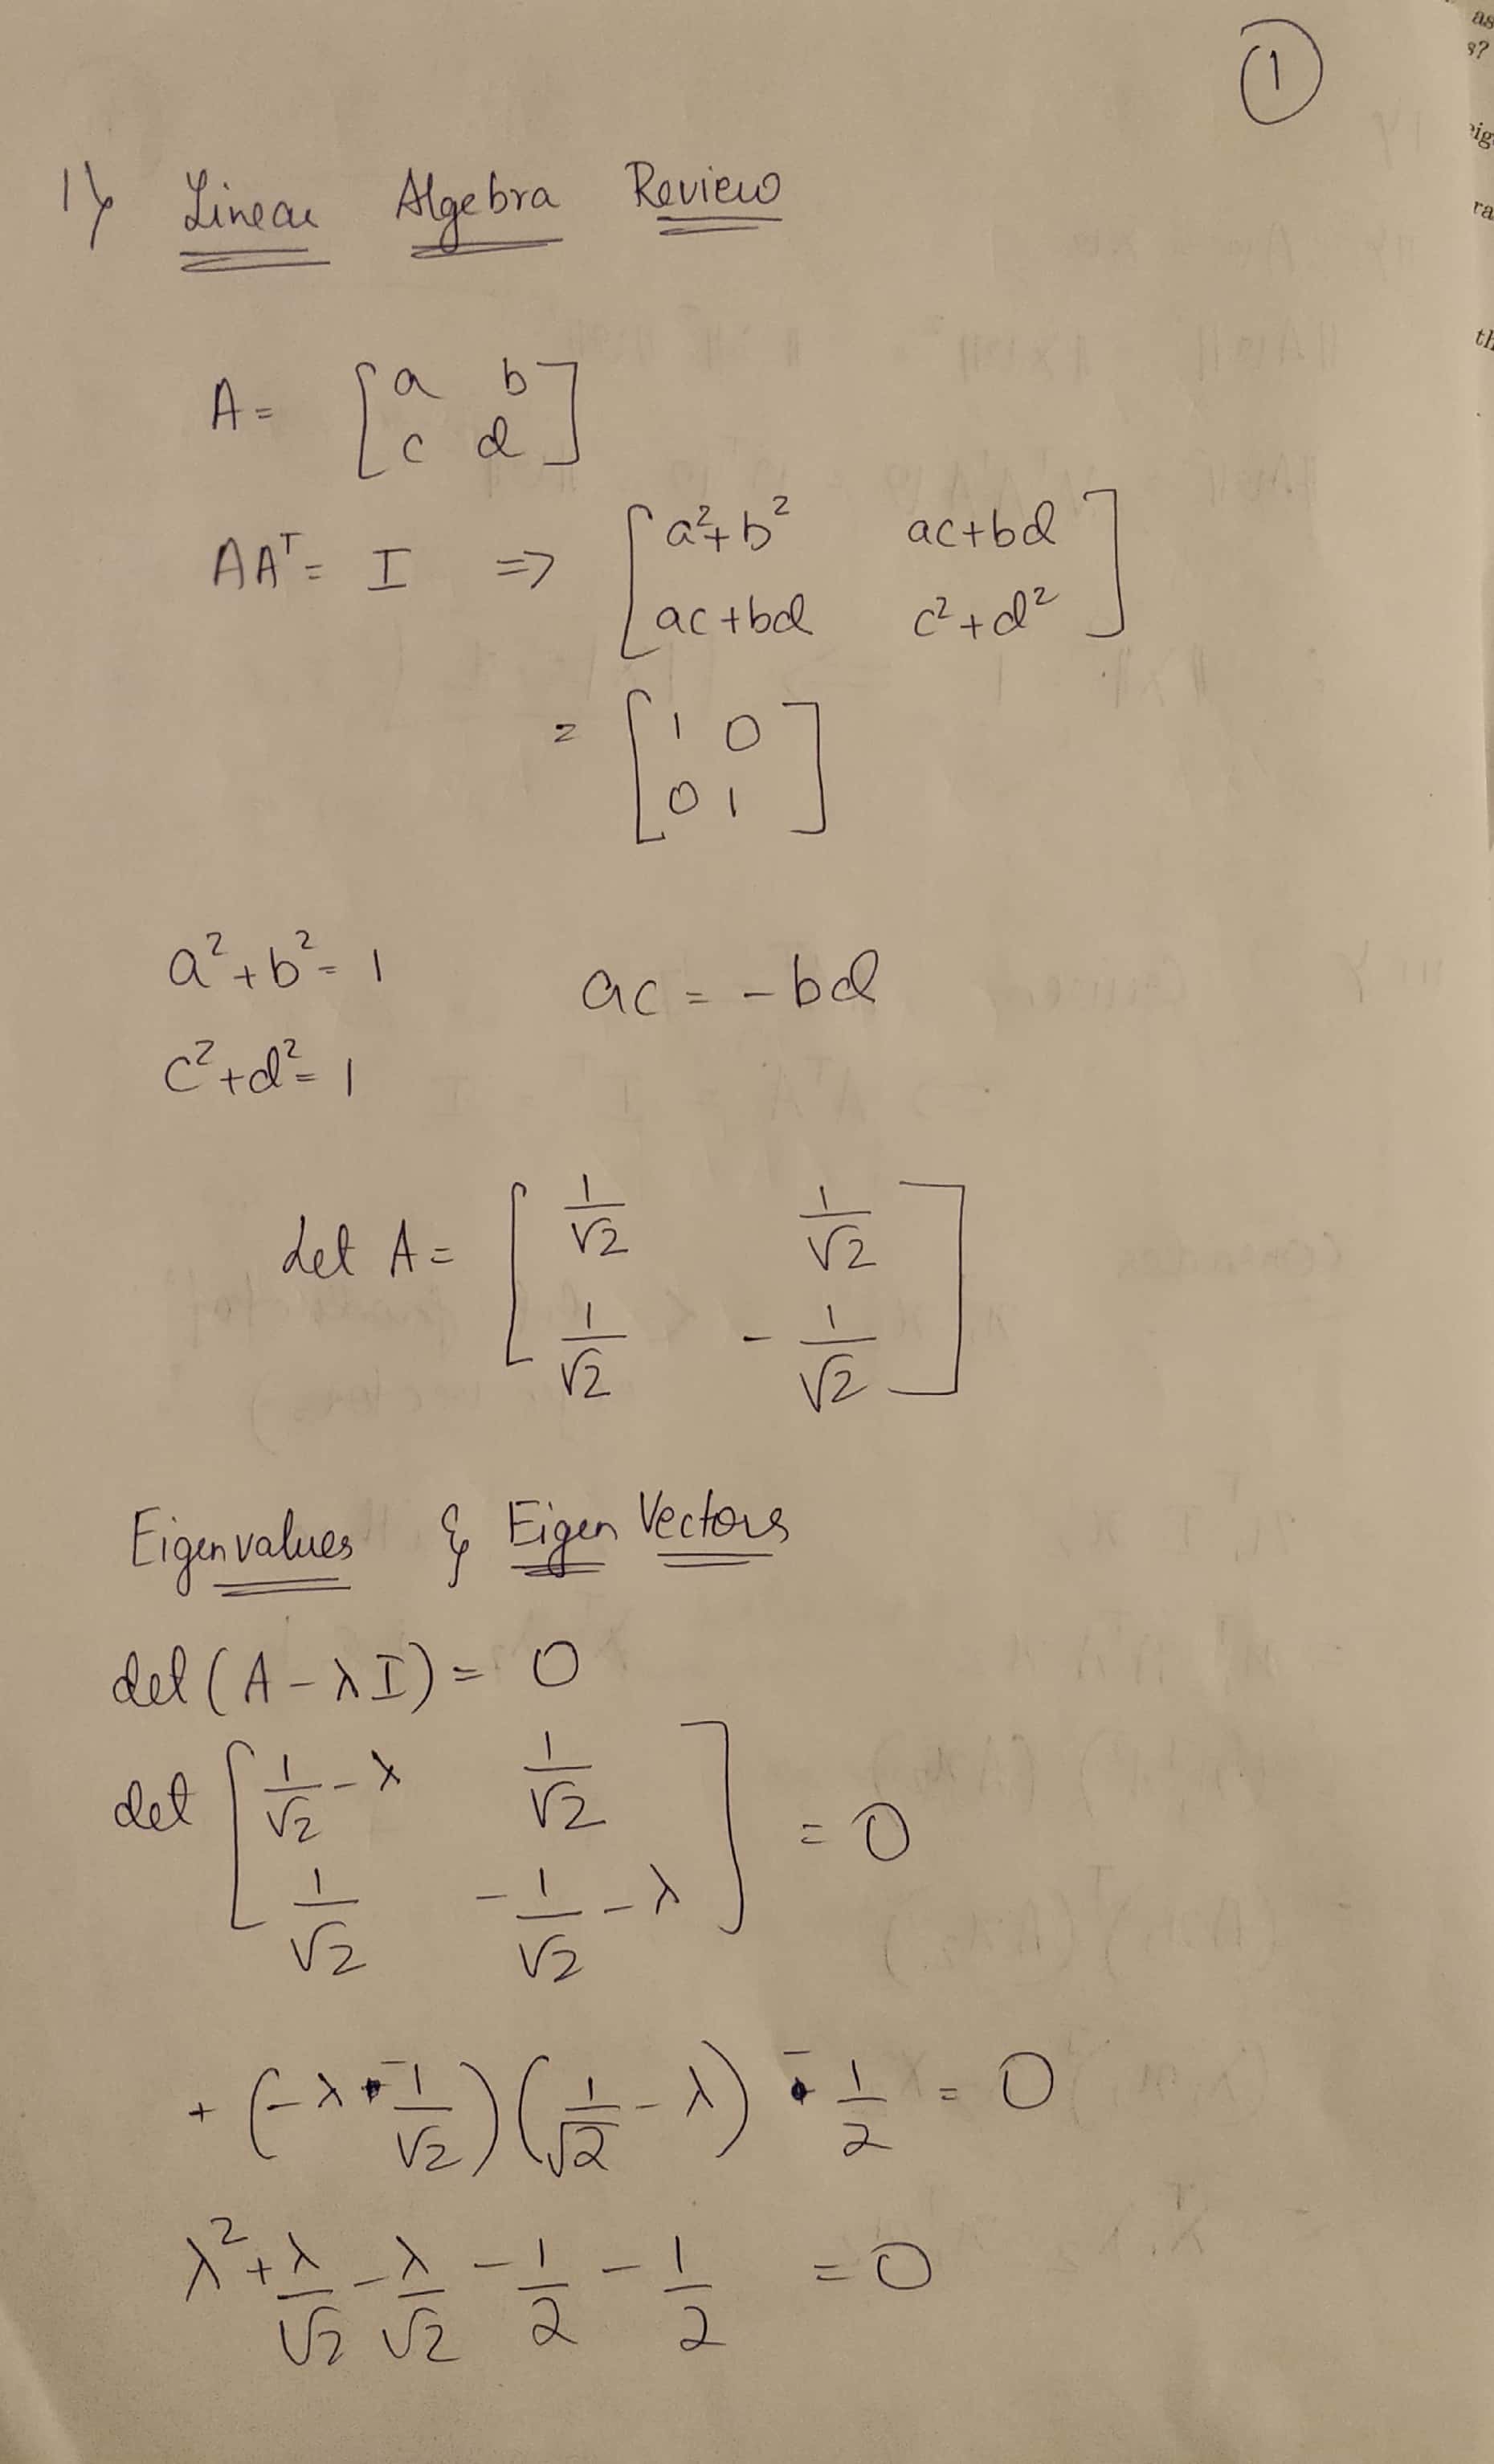 1
1) Linear Algebra Review
A = [a b
c d]
AAᵀ = I => [a²+b² ac+bd
ac+bd c²+d²]
= [1 0
0 1]
a²+b² = 1 ac = -bd
c²+d² = 1
Let A = [1/√2 1/√2
1/√2 -1/√2]
Eigenvalues & Eigen Vectors
det(A-λI) = 0
det [1/√2-λ 1/√2
1/√2 -1/√2-λ] = 0
+ (-λ-1/√2)(1/√2-λ) - 1/2 = 0
λ²+λ/√2-λ/√2-1/2-1/2 = 0